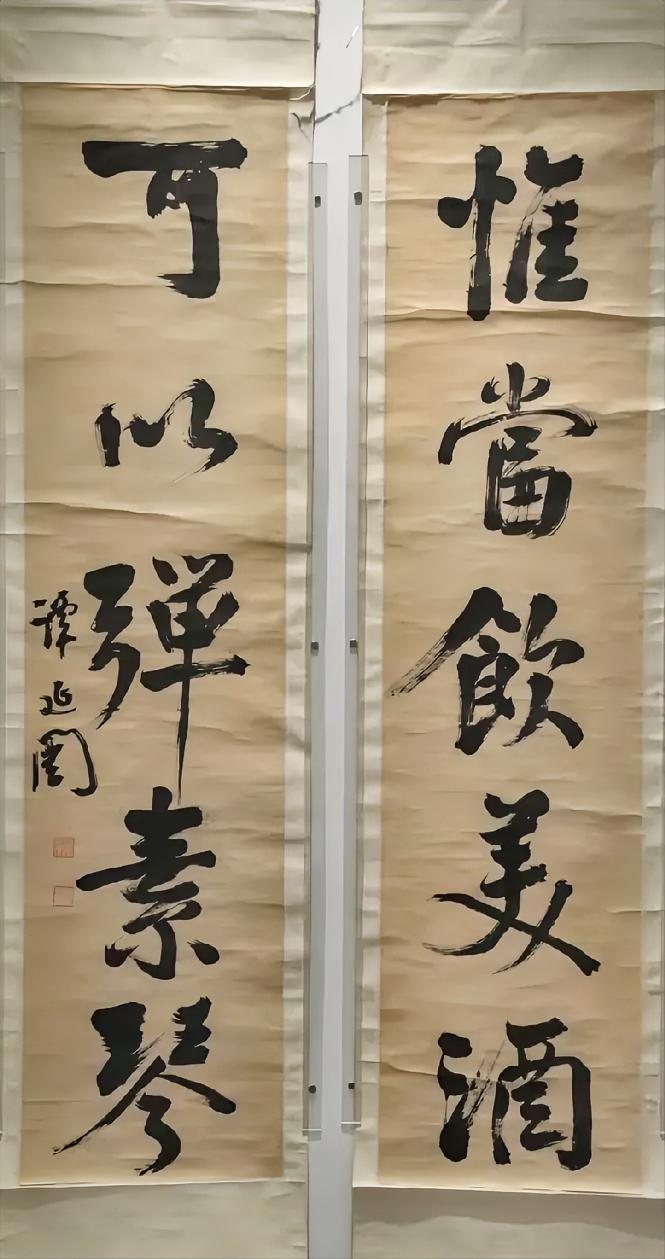 惟當飲美酒
可以彈素琴
譚延闓